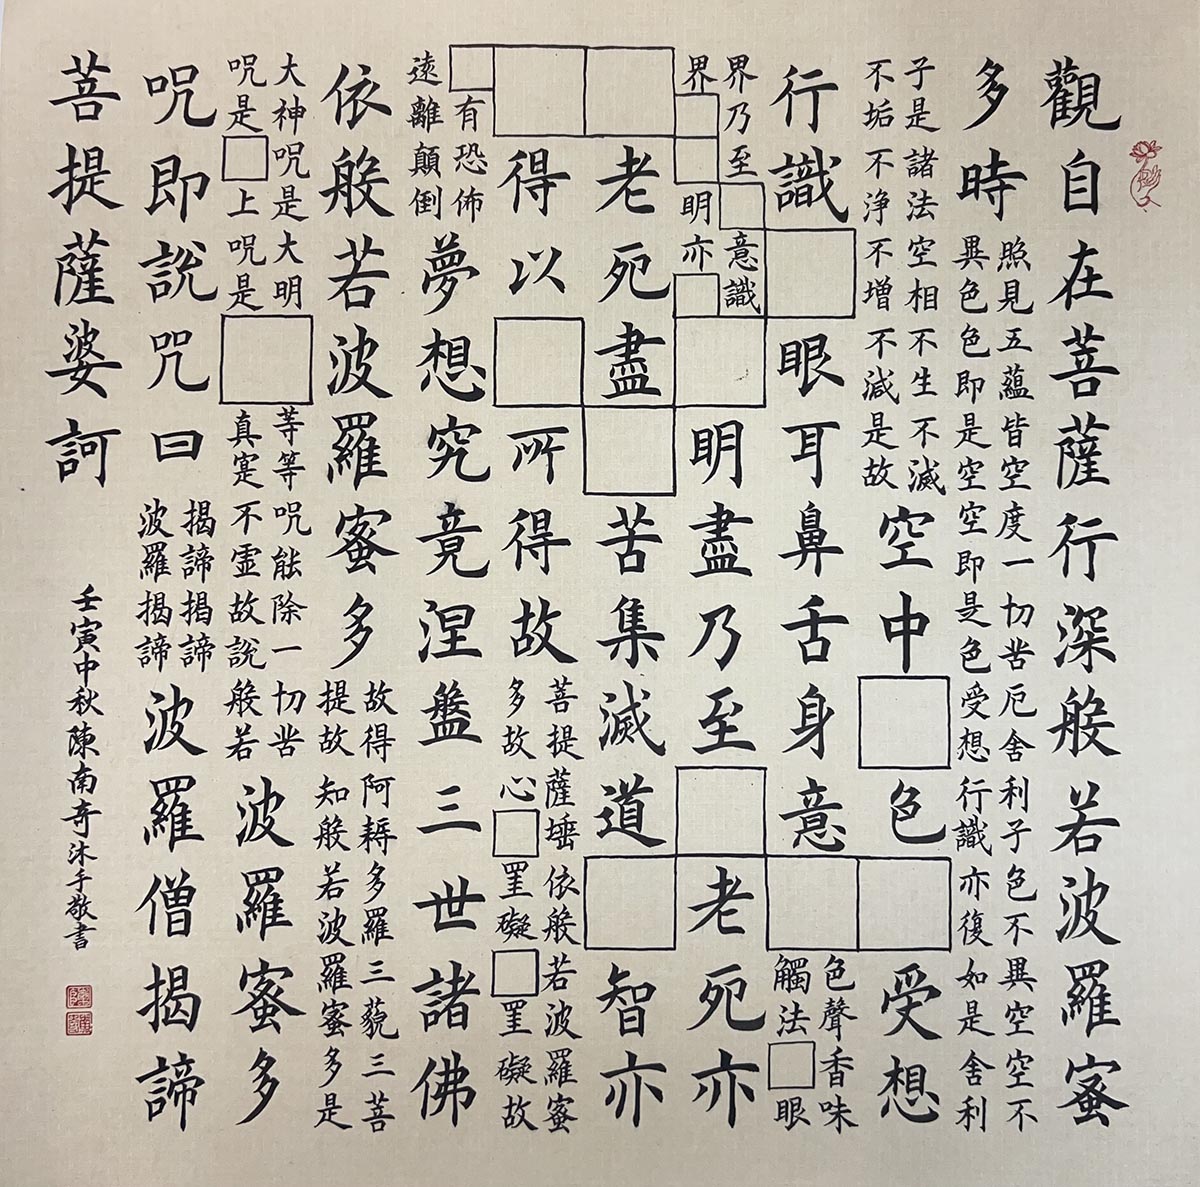 觀自在菩薩行深般若波羅蜜
多時
照見五蘊皆空度一切苦厄舍利子色不異空空不
異色色即是空空即是色受想行識亦復如是舍利
子是諸法空相不生不滅
不垢不浄不增不減是故
空中□色□受想
行識□眼耳鼻舌身意□
色聲香味
觸法□眼
界乃至□意識
界□□明亦□
□明盡乃至□老死亦
□老死盡□苦集滅道□智亦
□得以□所得故
菩提薩埵依般若波羅蜜
多故心□罣礙□罣礙故
□有恐佈
遠離顛倒
夢想究竟涅盤三世諸佛
依般若波羅蜜多
故得阿耨多羅三藐三菩
提故知般若波羅蜜多是
大神呪是大明
呪是□上呪是
□
等等呪能除一切苦
真寔不虛故說般若
波羅蜜多
呪即說咒曰
揭諦揭諦
波羅揭諦
波羅僧揭諦
菩提薩婆訶
壬寅中秋陳南奇沐手敬書